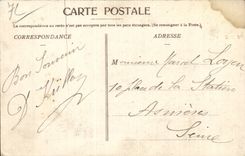 CARTE POSTALE
La correspondance au recto n'est pas acceptée par tous les pays étrangers. (Se renseigner à la Poste.)
CORRESPONDANCE
ADRESSE
Bon Souvenir
Monsieur Marcel
10 place de la Station
Asnières
Seine